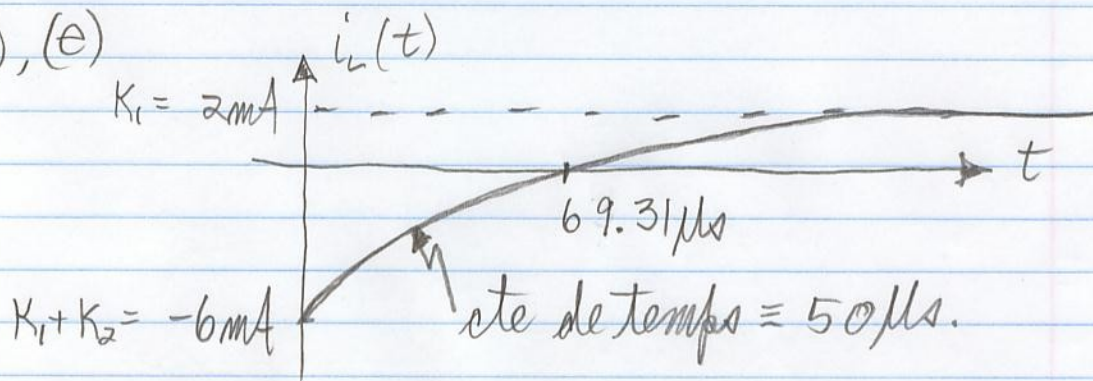 ), (e)
i_L(t)
K₁ = 2mA
t
69.31μs
K₁+K₂ = -6mA
cte de temps ≡ 50μs.